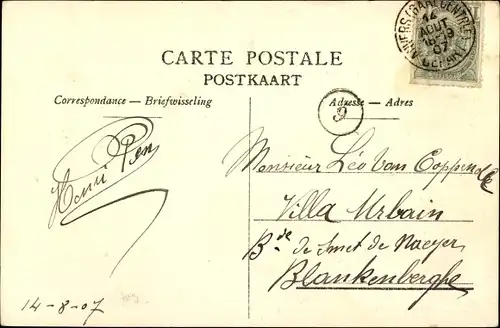 CARTE POSTALE
POSTKAART
Correspondance — Briefwisseling
Adresse — Adres
ANVERS (GARE CENTRALE)
14
AOUT
07
DEPART
9
Henri Pen
Monsieur Léo Van Coppenolle
Villa Urbain
Bd de Smet de Naeyer
Blankenberghe
14-8-07